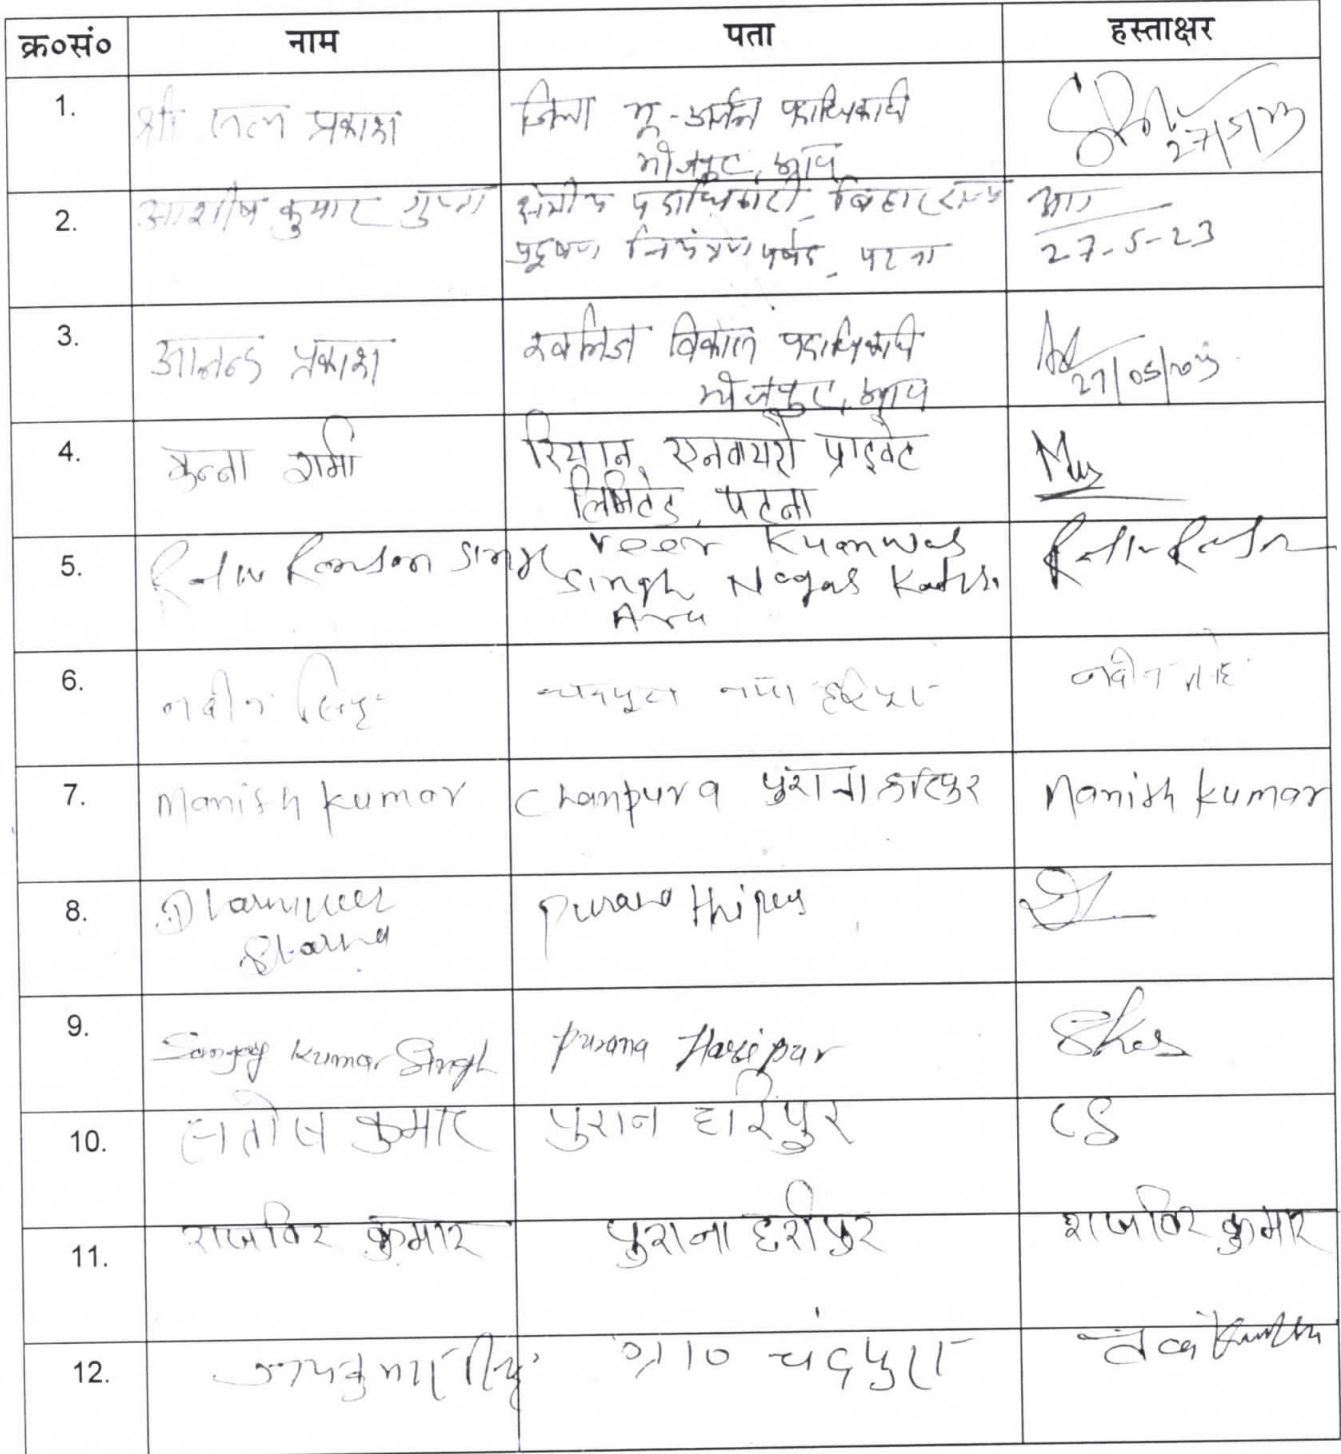 क्र०सं० नाम पता हस्ताक्षर
1. श्री सत्य प्रकाश जिला भू-अर्जन पदाधिकारी 27/5/23
भोजपुर, आरा
2. आशीष कुमार गुप्ता क्षेत्रीय पदाधिकारी, बिहार राज्य
प्रदूषण नियंत्रण पर्षद, पटना 27-5-23
3. आनन्द प्रकाश खनिज विकास पदाधिकारी 27/05/2023
भोजपुर, आरा
4. मुन्ना शर्मा रियान एनवायरो प्राइवेट
लिमिटेड, पटना
5. Ranjan Singh Veer Kunwar
Singh Nagar
Ara
6. नवीन सिंह नया हरिपुर नवीन सिंह
7. Manish Kumar Chanpura पुराना हरिपुर Manish Kumar
8. Dharmveer
Sharma
9. Sanjay Kumar Singh Purana Haripur
10. संतोष कुमार पुरान हरिपुर
11. राजविर कुमार पुराना हरीपुर राजविर कुमार
12. ग्रा० चंदपुरा